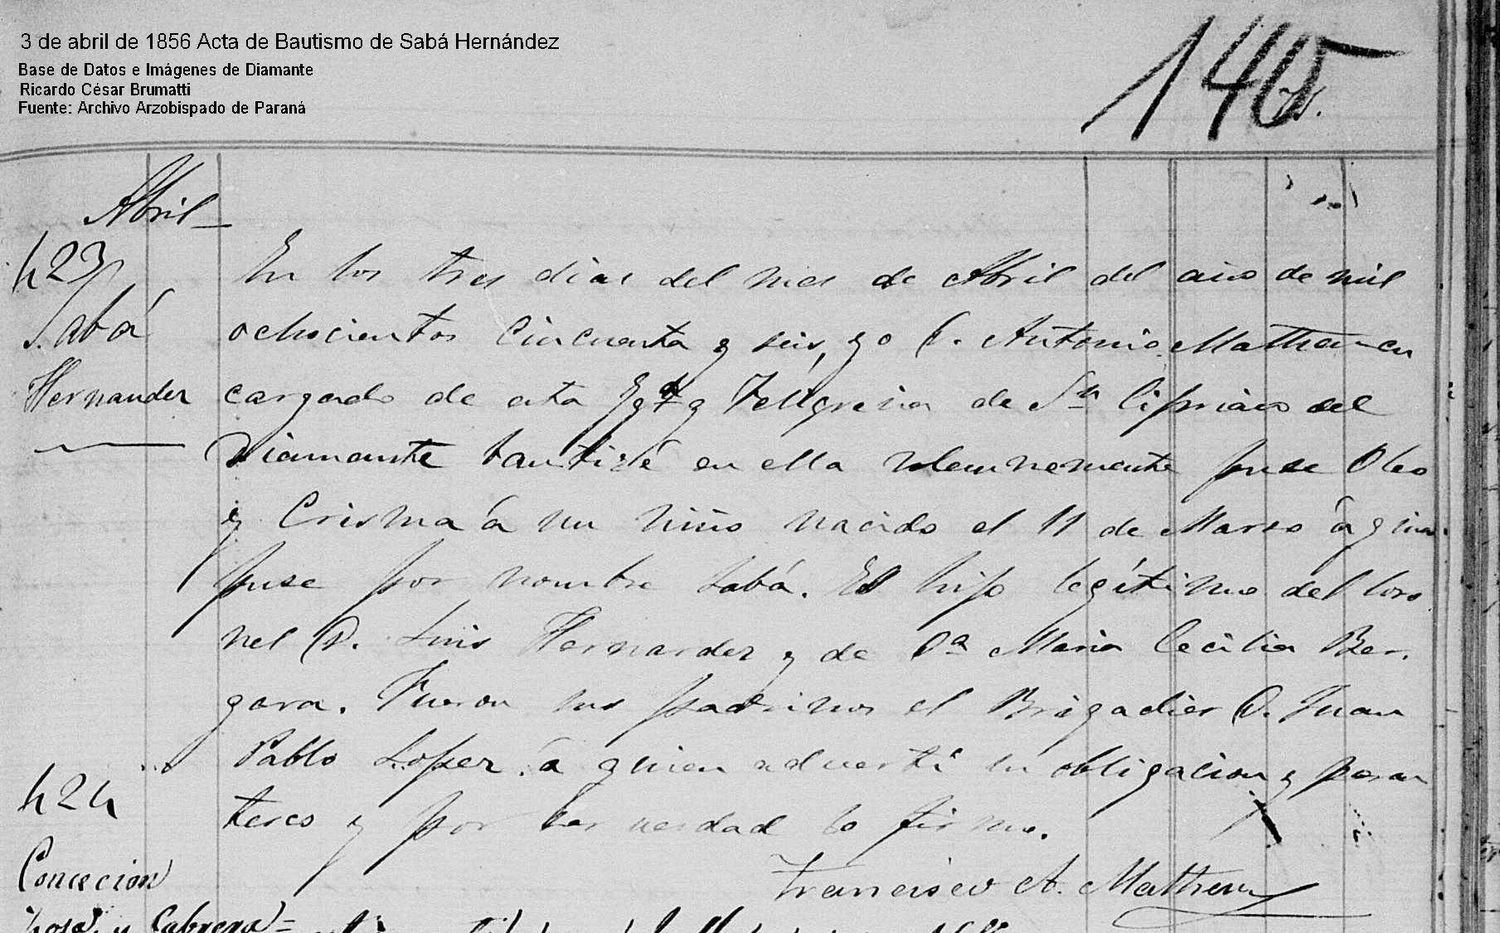 3 de abril de 1856 Acta de Bautismo de Sabá Hernández
Base de Datos e Imágenes de Diamante
Ricardo César Brumatti
Fuente: Archivo Arzobispado de Paraná
140
Abril
423
Sabá
Hernandez
En los tres dias del mes de Abril del año de mil
ochocientos cincuenta y seis, yo Antonio Matheu en
cargado de esta Feligresia de Sn Cipriano del
Diamante bautizé en ella solemnemente puse Oleo
y Crisma á un niño nacido el 11 de Marzo á quien
puse por nombre Sabá. Es hijo legítimo del Coro
nel D. Luis Hernandez y de Da Maria Cecilia Ber.
gara. Fueron sus padrinos el Brigadier D. Juan
Pablo Lopez á quien advertí su obligacion y paren
tesco y por ser verdad lo firmo.
Francisco A. Matheu
424
Concecion
Rosa y Cabrera